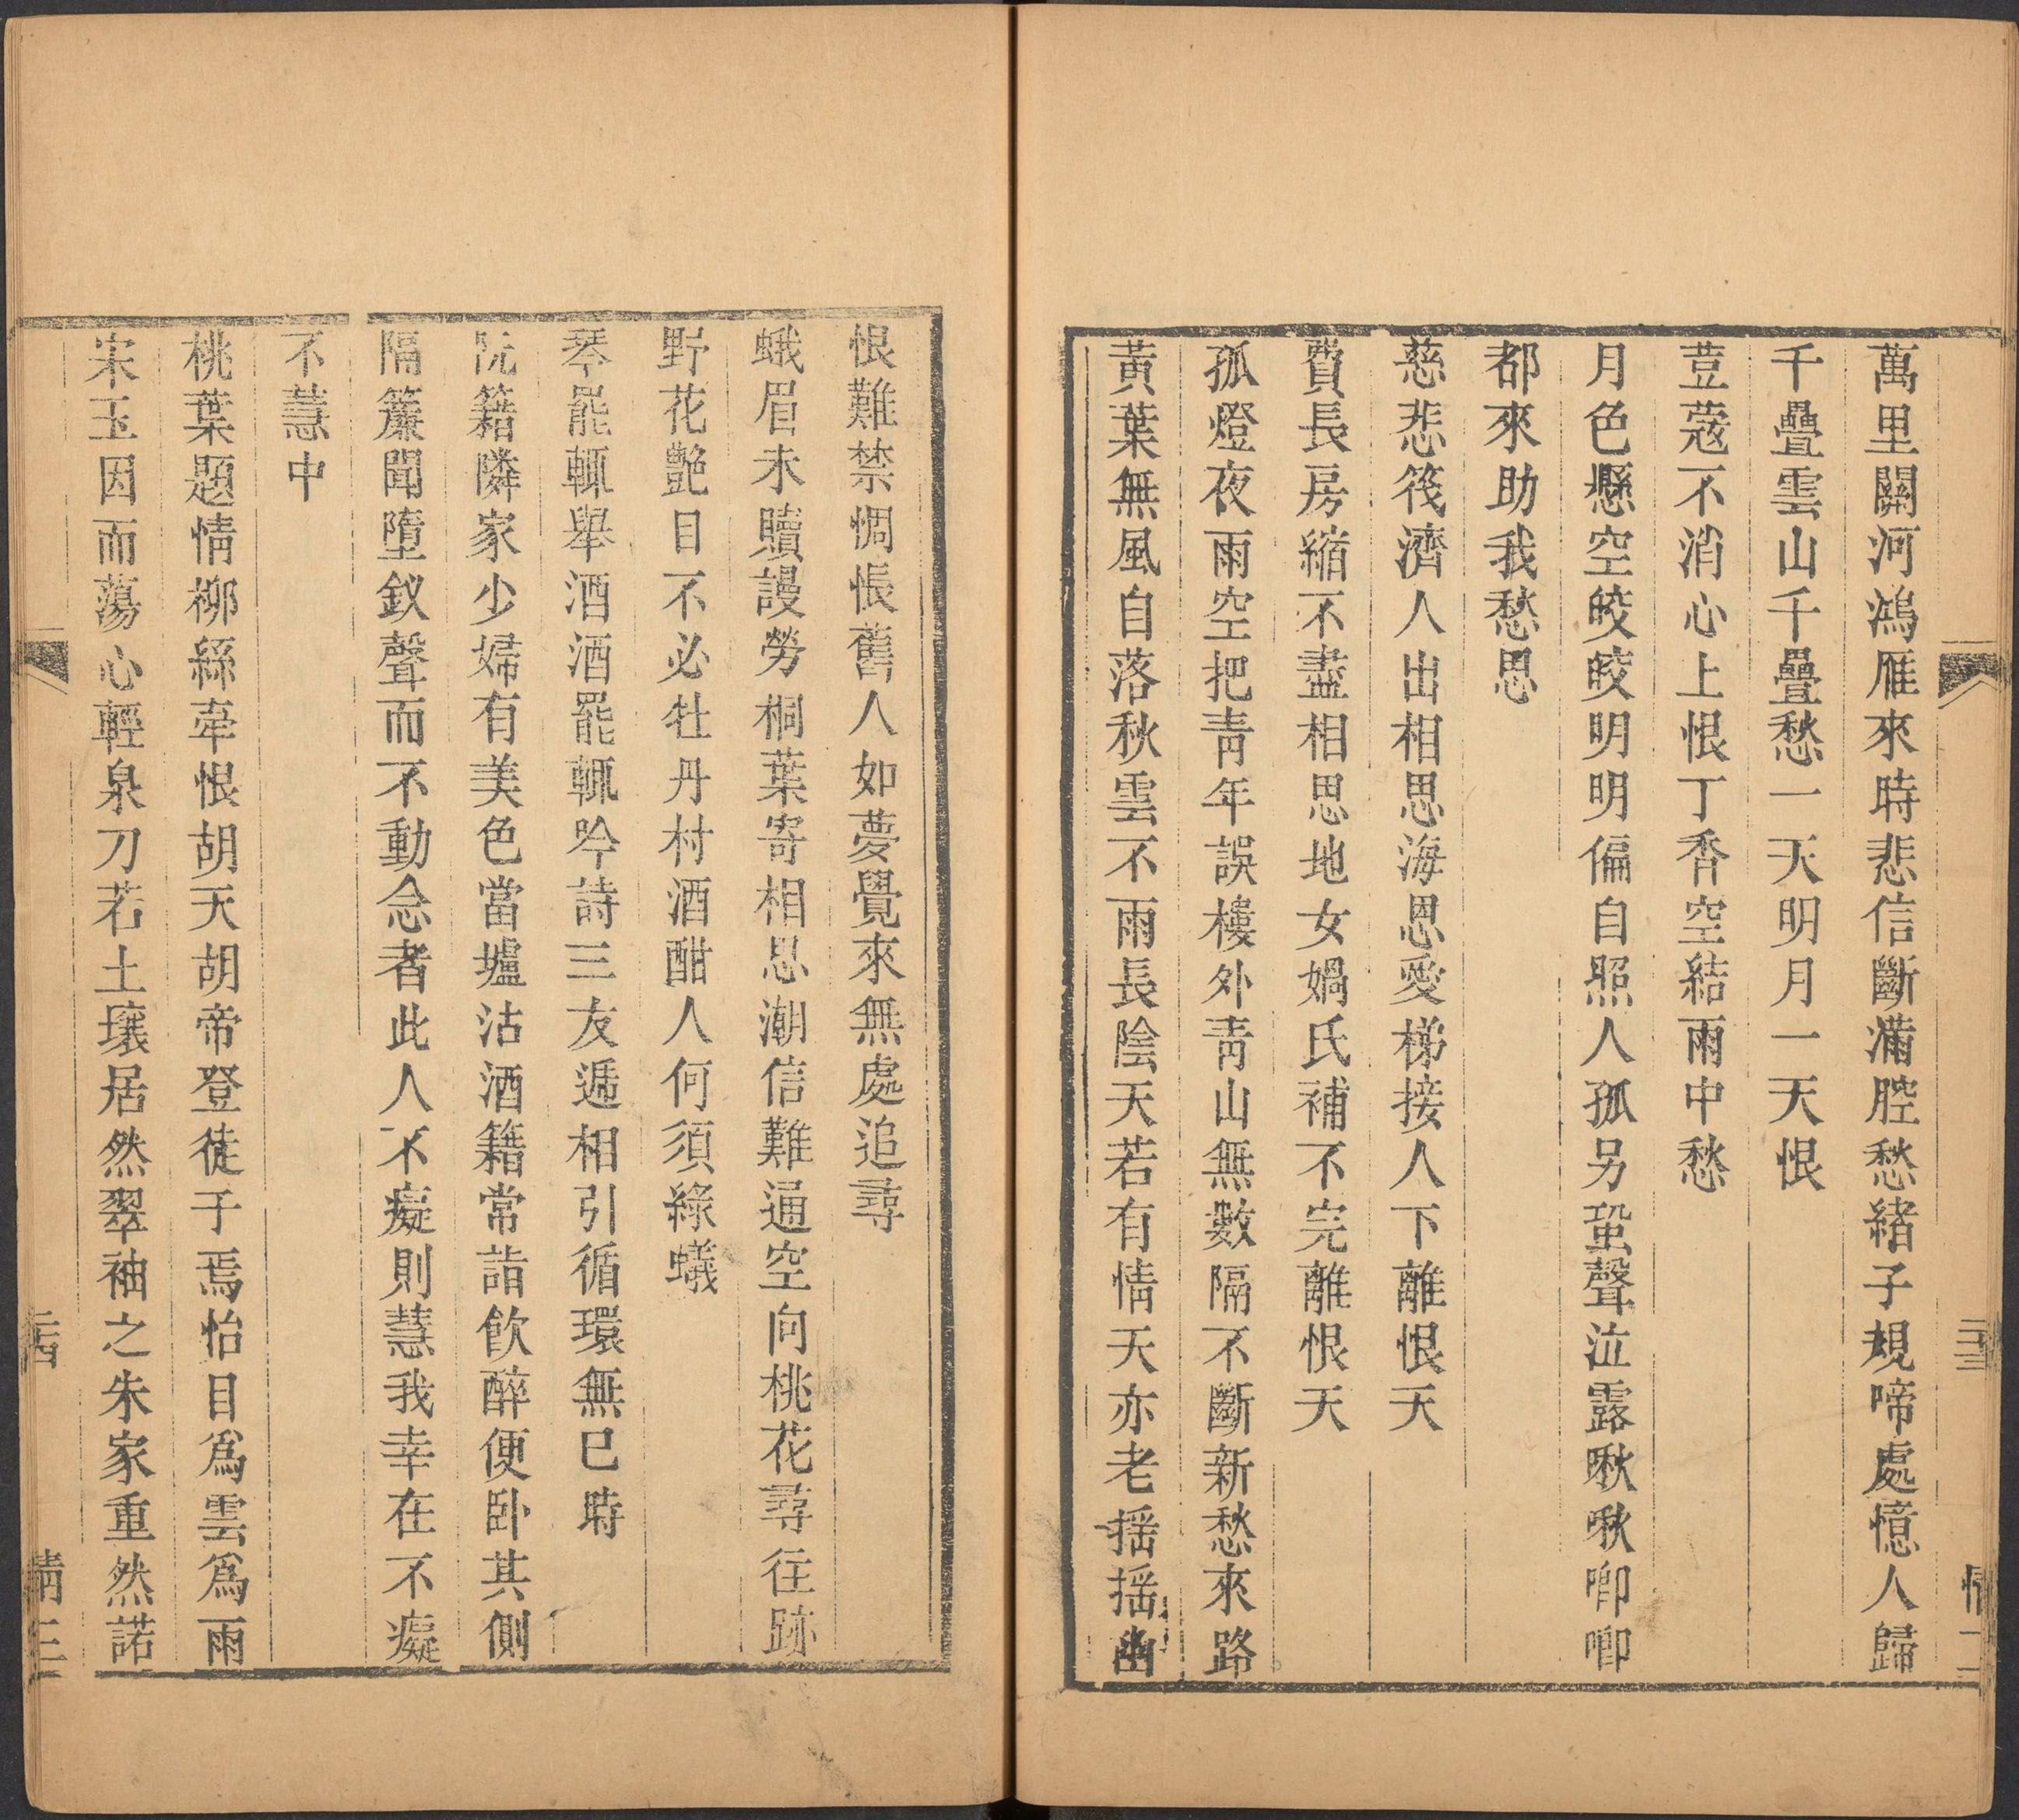 萬里關河鴻雁來時悲信斷滿腔愁緒子規啼處憶人歸
千疊雲山千疊愁一天明月一天恨
荳蔻不消心上恨丁香空結雨中愁
月色懸空皎皎明明偏自照人孤另蛩聲泣露啾啾唧唧
都來助我愁思
慈悲筏濟人出相思海恩愛梯接人下離恨天
費長房縮不盡相思地女媧氏補不完離恨天
孤燈夜雨空把青年誤樓外青山無數隔不斷新愁來路
黃葉無風自落秋雲不雨長陰天若有情天亦老揺揺幽
恨難禁惆悵舊人如夢覺來無處追尋
蛾眉未贖謾勞桐葉寄相思潮信難通空向桃花尋往跡
野花艷目不必牡丹村酒酣人何須綠蟻
琴罷輒舉酒酒罷輒吟詩三友遞相引循環無已時
阮籍隣家少婦有美色當壚沽酒籍常詣飲醉便卧其側
隔簾聞墮釵聲而不動念者此人不癡則慧我幸在不癡
不慧中
桃葉題情柳絲牽恨胡天胡帝登徒于焉怡目爲雲爲雨
宋玉因而蕩心輕泉刀若土壤居然翠袖之朱家重然諾